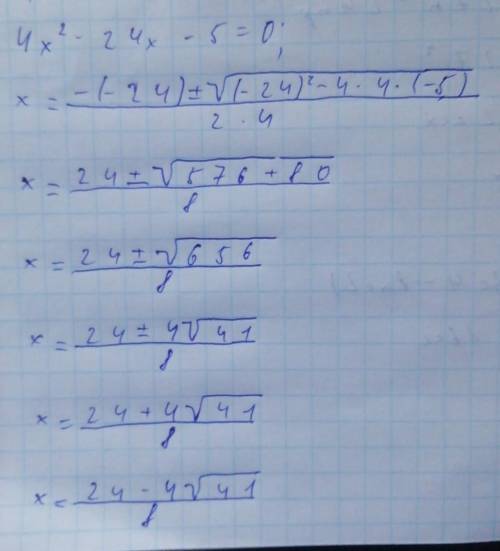 4x² - 24x - 5 = 0;
x = (-(-24) ± √((-24)² - 4 · 4 · (-5))) / (2 · 4)
x = (24 ± √(576 + 80)) / 8
x = (24 ± √656) / 8
x = (24 ± 4√41) / 8
x = (24 + 4√41) / 8
x = (24 - 4√41) / 8